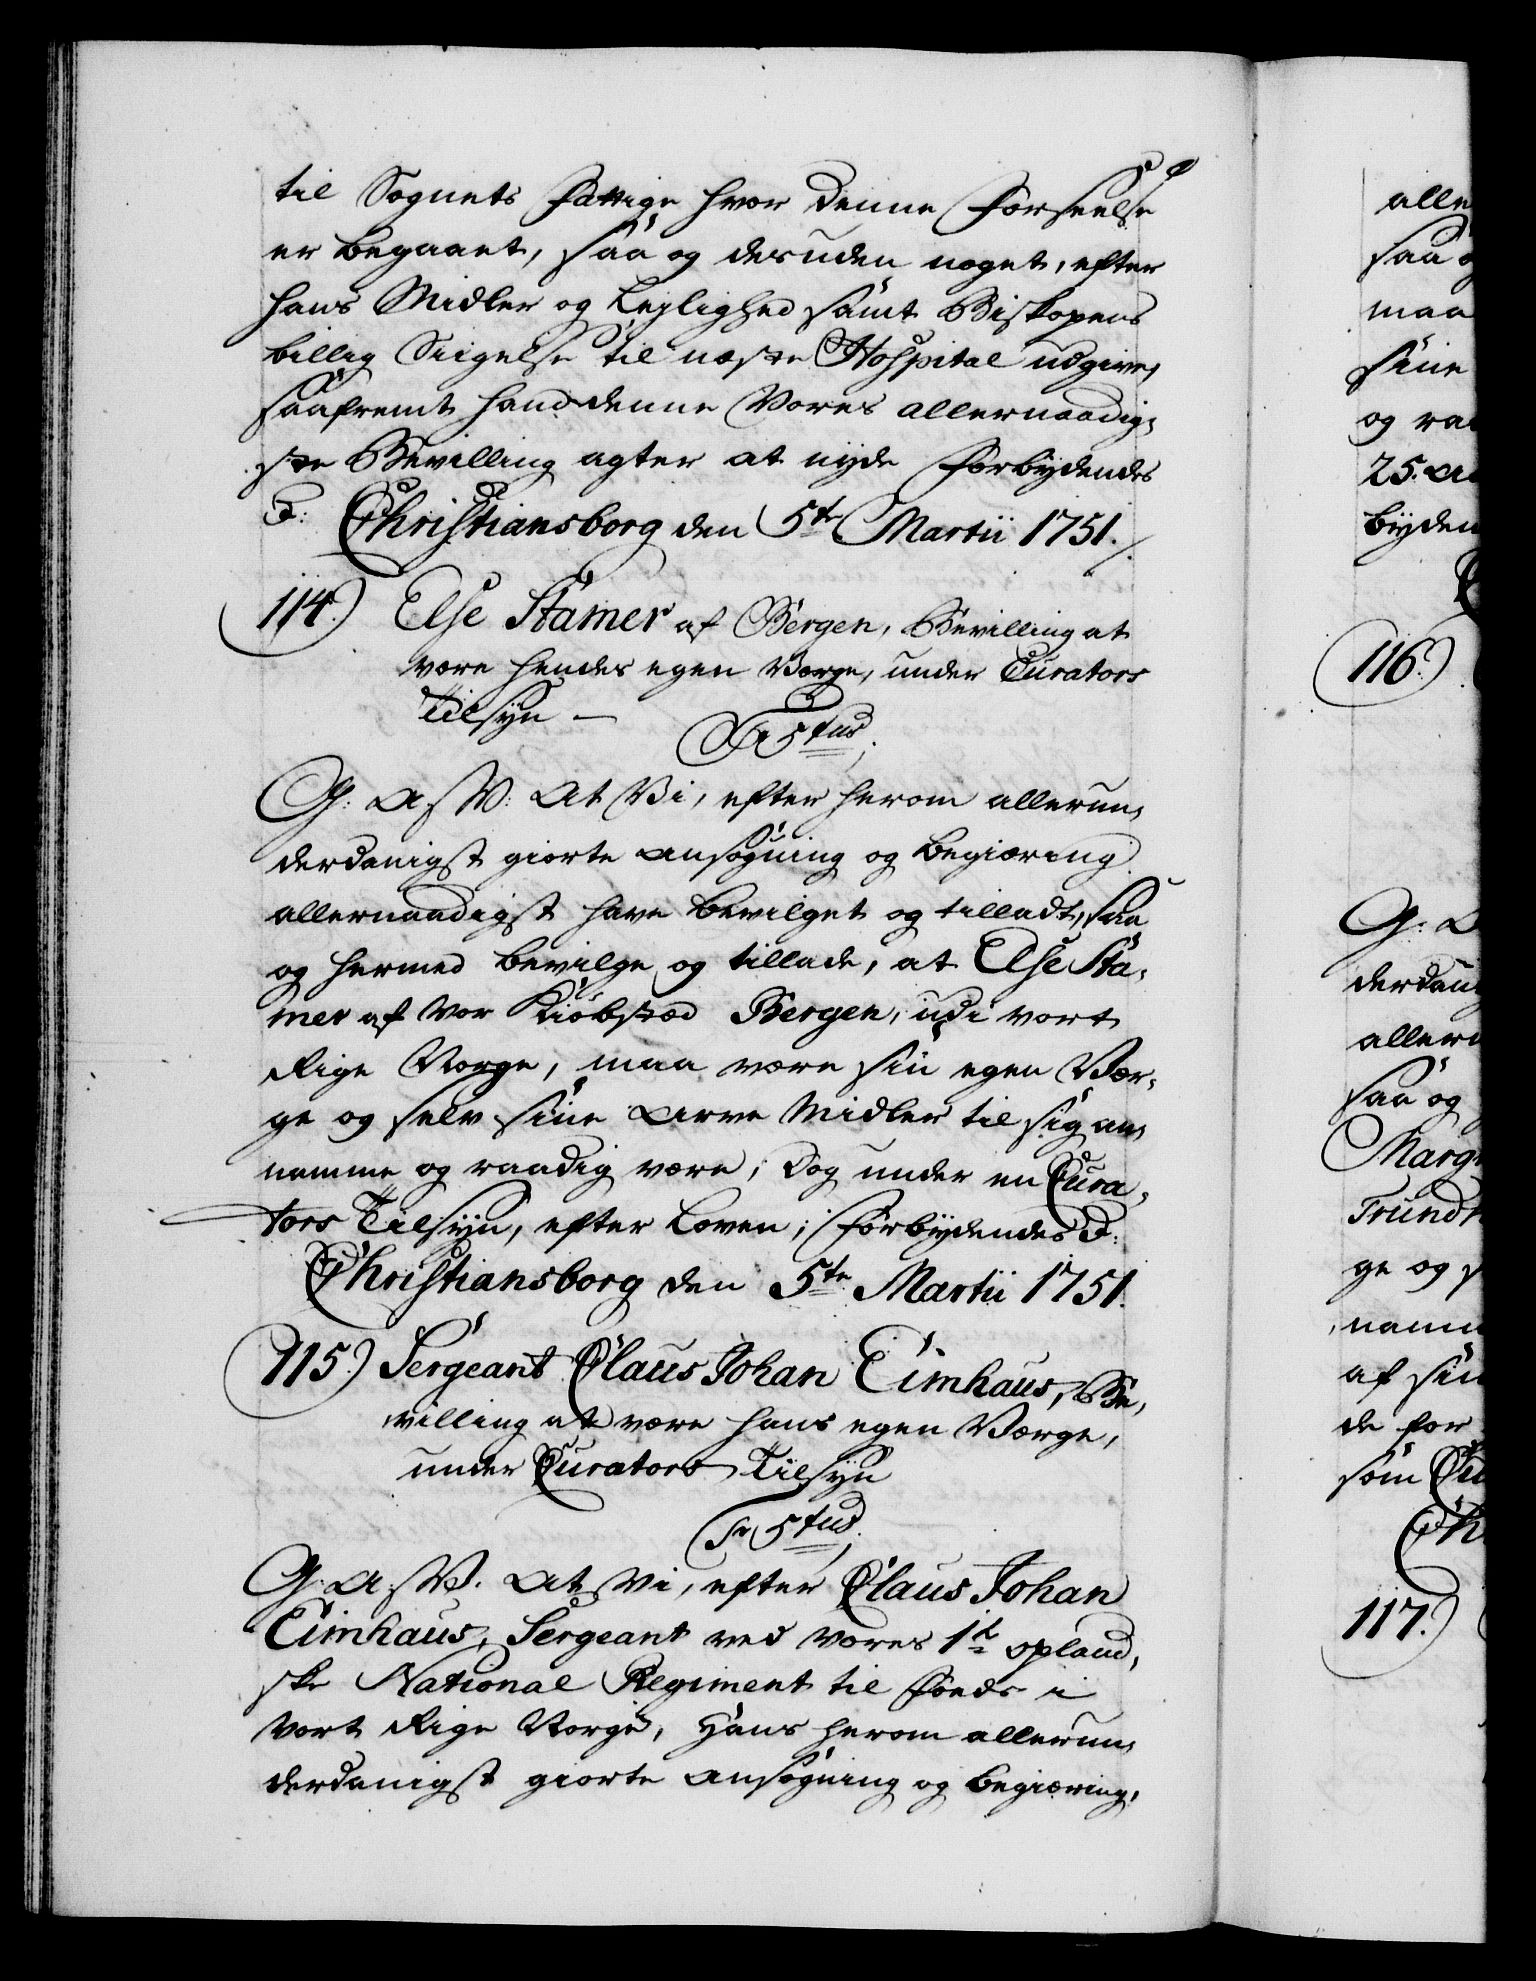 til Sognets Fattige hvor denne Forseelse
er begaaet, saa og desuden noget, efter
hans Midler og Lejlighed samt Biskopens
billig Sigelse til næste Hospital udgive,
saafremt hand denne Vores allernaadig,
ste Bevilling agter at nyde Forbydendes
Christiansborg den 5te Martii 1751.
114.) Else Stamer af Bergen, Bevilling at
være hendes egen Værge, under Curators
Tilsyn —
Fr 5tus
G: A s V: At Vi, efter herom allerun,
derdanigst giorte ansøgning og begiæring
allernaadigst have bevilget og tilladt, saa
og hermed bevilge og tillade, at Else Sta,
mer af vor Kiøbstæd Bergen, udi vort
Rige Norge, maa være sin egen Vær,
ge og selv sine Arve Midler til sig an,
namme og raadig være; Dog under en Cura,
tors Tilsyn, efter Loven; Forbydendes
Christiansborg den 5te Martii 1751.
115.) Sergeant Claus Johan Eimhaus, Be,
villing at være hans egen Værge,
under Curators Tilsyn
Fr 5tus
G: A s V. At Vi, efter Claus Johan
Eimhaus, Sergeant ved vores 1te opland,
ske National Regiment til Foeds i
vort Rige Norge, Hans herom allerun,
derdanigst giorte ansøgning og begiæring,
alle
saa
maa
sine
og
25.
byden
116.)
G:
derdan
saa og
Marg
Trund
ge og
namm
af
de for
som
117.)